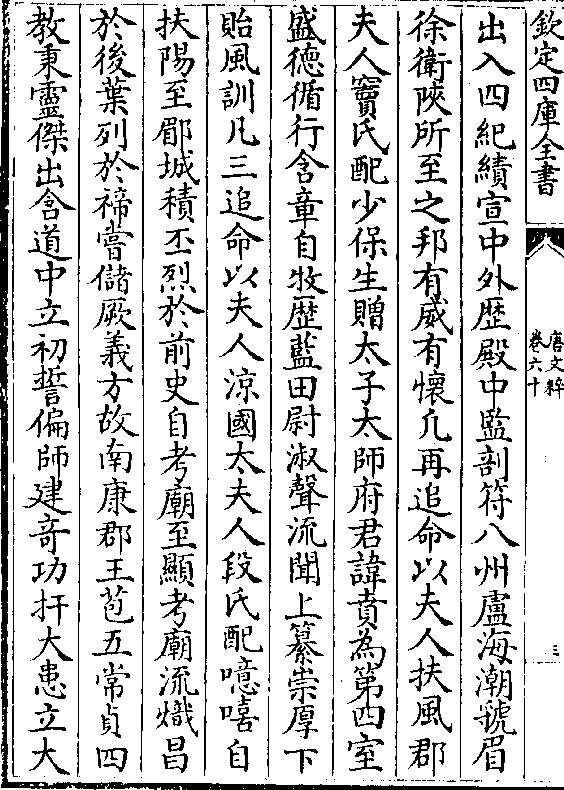 欽定四庫全書
唐文粹
卷六十
三
出入四紀績宣中外歴殿中監剖符八州盧海潮虢眉
徐衛陜所至之邦有威有懷凡再追命以夫人扶風郡
夫人竇氏配少保生贈太子太師府君諱賁為第四室
盛德循行含章自牧歴藍田尉淑聲流聞上纂崇厚下
貽風訓凡三追命以夫人涼國太夫人段氏配噫嘻自
扶陽至郿城積丕烈於前史自考廟至顯考廟流熾昌
於後葉列於禘嘗儲厥義方故南康郡王苞五常貞四
教秉靈傑出含道中立初誓偏師建竒功扞大患立大